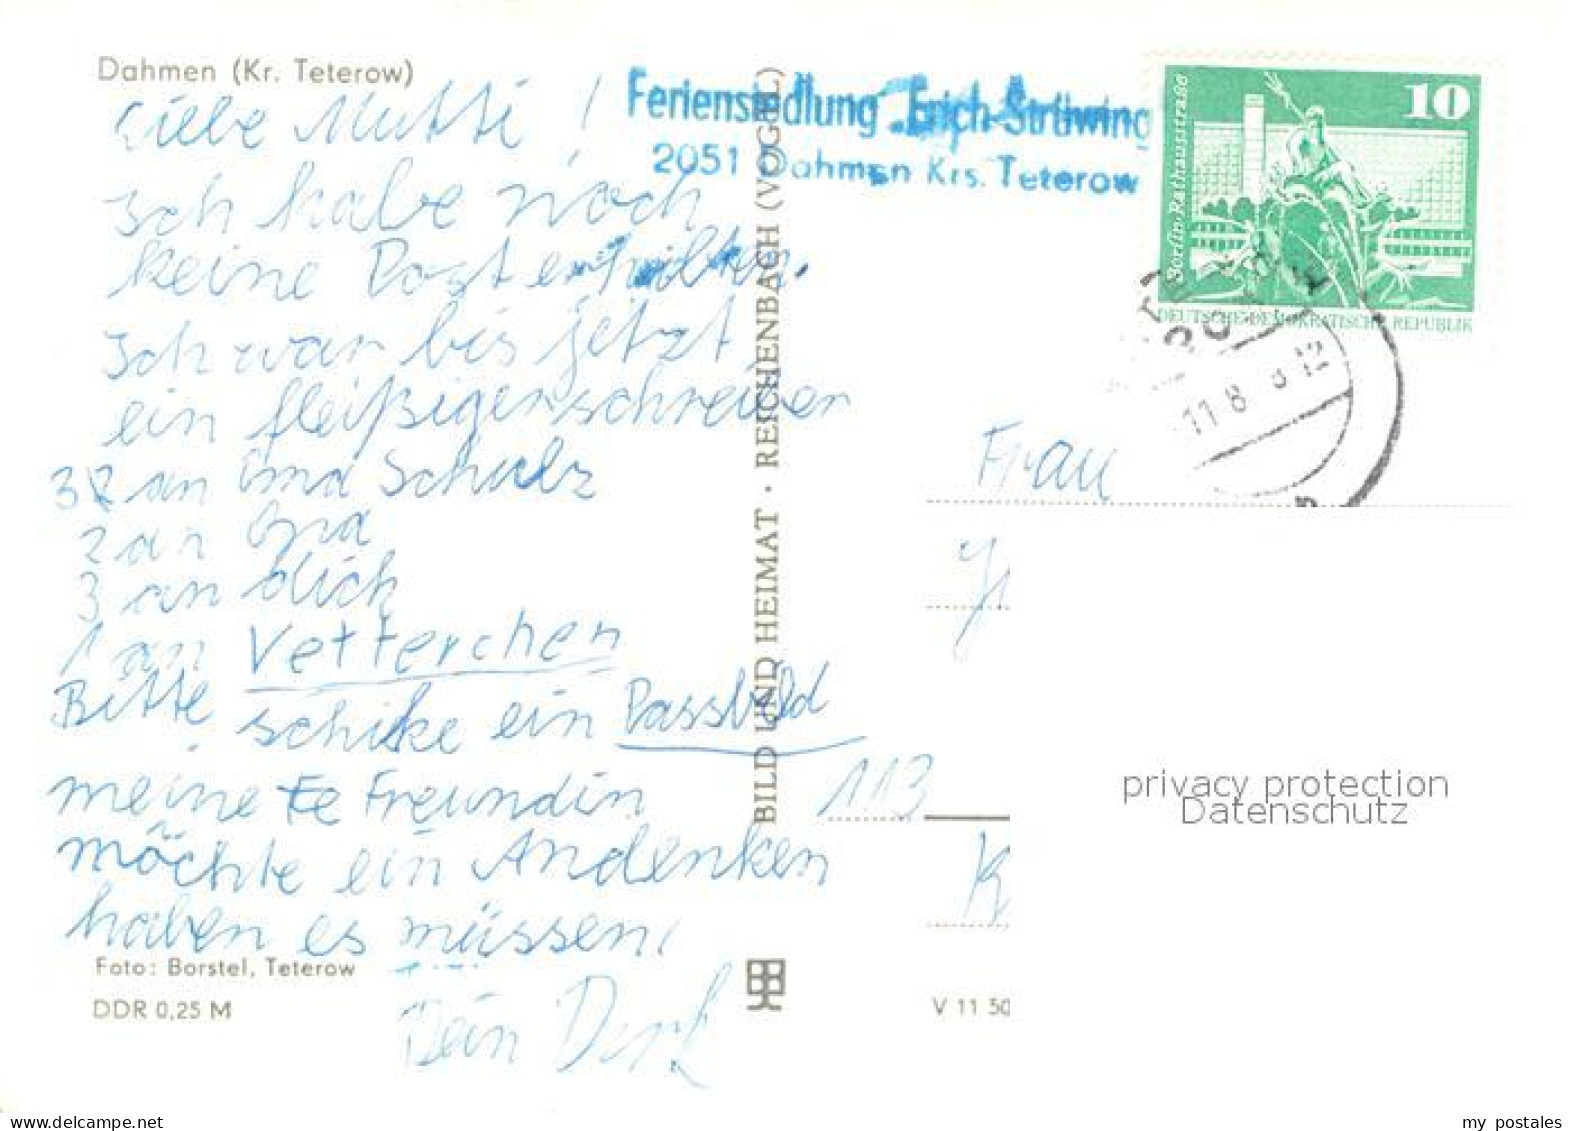 Dahmen (Kr. Teterow)
Liebe Mutti!
Ich habe noch
keine Post erhalten.
Ich war bis jetzt
ein fleißigerschreiber
3 an Oma Schulz
2 an Opa
3 an dich
1 an Vetterchen
Bitte schike ein Passbild
meine Freundin
möchte ein Andenken
haben es müssen,
Dein Dirk
Foto: Borstel, Teterow
DDR 0,25 M
BILD UND HEIMAT · REICHENBACH (VOGTL.)
Feriensiedlung „Erich Strüwing
2051 Dahmen Krs. Teterow
10
Berlin, Rathausstraße
DEUTSCHE DEMOKRATISCHE REPUBLIK
11.8 12
Frau
113
K
V 11 50
privacy protection
Datenschutz
my postales